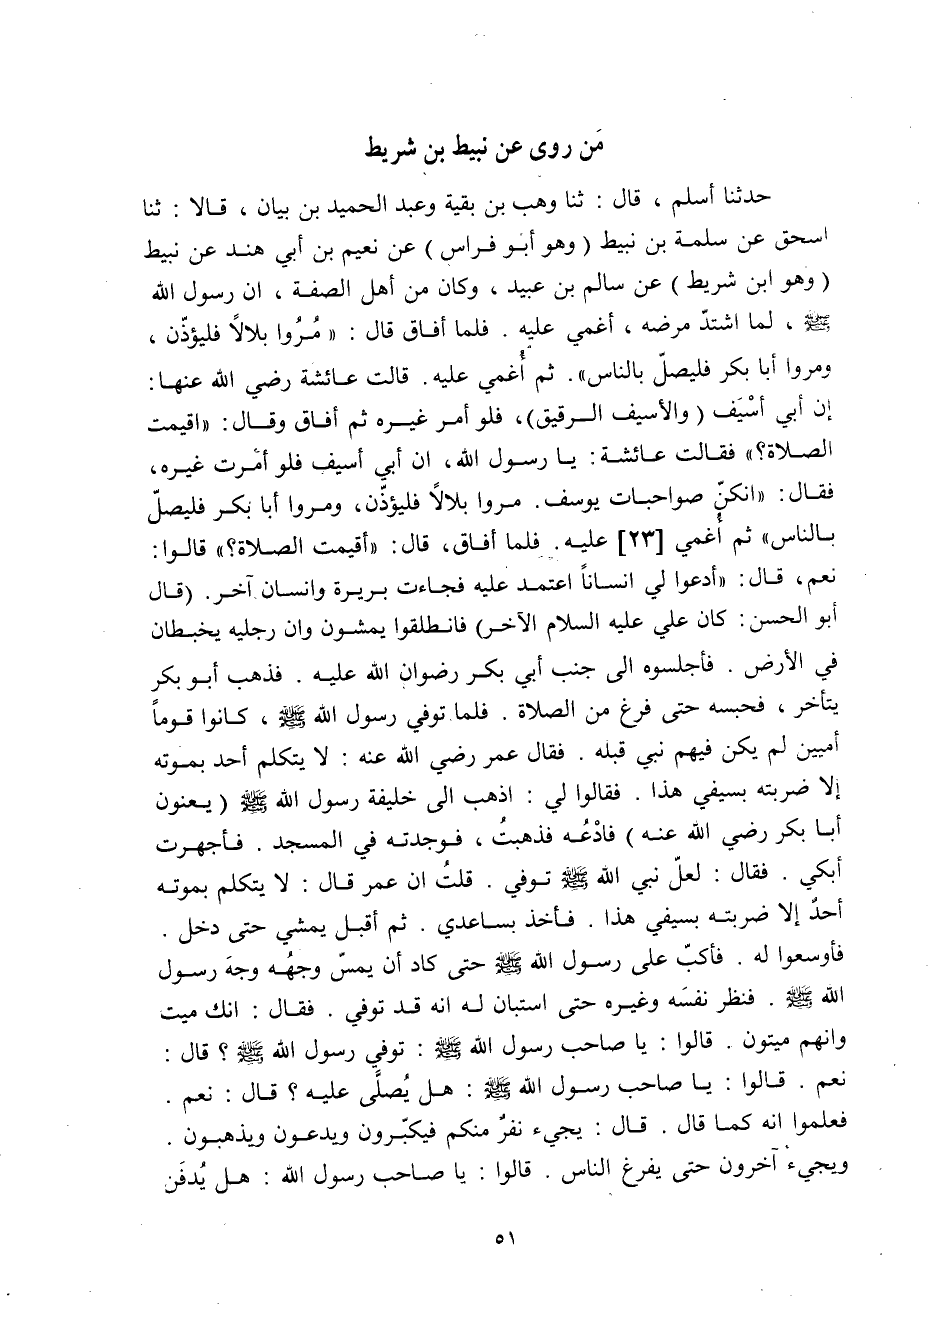 مَن روى عن نبيط بن شريط
حدثنا أسلم ، قال : ثنا وهب بن بقية وعبد الحميد بن بيان ، قالا : ثنا
اسحق عن سلمة بن نبيط ( وهو أبو فراس ) عن نعيم بن أبي هند عن نبيط
( وهو ابن شريط ) عن سالم بن عبيد ، وكان من أهل الصفة ، ان رسول الله
ﷺ ، لما اشتدّ مرضه ، أغمي عليه . فلما أفاق قال : « مُرُوا بلالاً فليؤذّن ،
ومروا أبا بكر فليصلّ بالناس». ثم أُغمي عليه. قالت عائشة رضي الله عنها:
إن أبي أسْيَف ( والأسيف الرقيق)، فلو أمر غيره ثم أفاق وقال: «اقيمت
الصلاة؟» فقالت عائشة: يا رسول الله، ان أبي أسيف فلو أمرت غيره،
فقال: «انكنّ صواحبات يوسف. مروا بلالاً فليؤذّن، ومروا أبا بكر فليصلّ
بالناس» ثم أُغمي [٢٣] عليه. فلما أفاق، قال: «أقيمت الصلاة؟» قالوا:
نعم، قال: «أدعوا لي انساناً اعتمد عليه فجاءت بريرة وانسان آخر. (قال
أبو الحسن: كان علي عليه السلام الآخر) فانطلقوا يمشون وان رجليه يخبطان
في الأرض . فأجلسوه الى جنب أبي بكر رضوان الله عليه . فذهب أبو بكر
يتأخر ، فحبسه حتى فرغ من الصلاة . فلما توفي رسول الله ﷺ ، كانوا قوماً
أميين لم يكن فيهم نبي قبله . فقال عمر رضي الله عنه : لا يتكلم أحد بموته
إلا ضربته بسيفي هذا . فقالوا لي : اذهب الى خليفة رسول الله ﷺ ( يعنون
أبا بكر رضي الله عنه ) فادْعُه فذهبتُ ، فوجدته في المسجد . فأجهرت
أبكي . فقال : لعلّ نبي الله ﷺ توفي . قلتُ ان عمر قال : لا يتكلم بموته
أحدٌ إلا ضربته بسيفي هذا . فأخذ بساعدي . ثم أقبل يمشي حتى دخل .
فأوسعوا له . فأكبّ على رسول الله ﷺ حتى كاد أن يمسّ وجهُه وجهَ رسول
الله ﷺ . فنظر نفسَه وغيره حتى استبان له انه قد توفي . فقال : انك ميت
وانهم ميتون . قالوا : يا صاحب رسول الله ﷺ : توفي رسول الله ﷺ ؟ قال :
نعم . قالوا : يا صاحب رسول الله ﷺ : هل يُصلَّى عليه ؟ قال : نعم .
فعلموا انه كما قال . قال : يجيء نفرٌ منكم فيكبّرون ويدعون ويذهبون .
ويجيء آخرون حتى يفرغ الناس . قالوا : يا صاحب رسول الله : هل يُدفَن
٥١